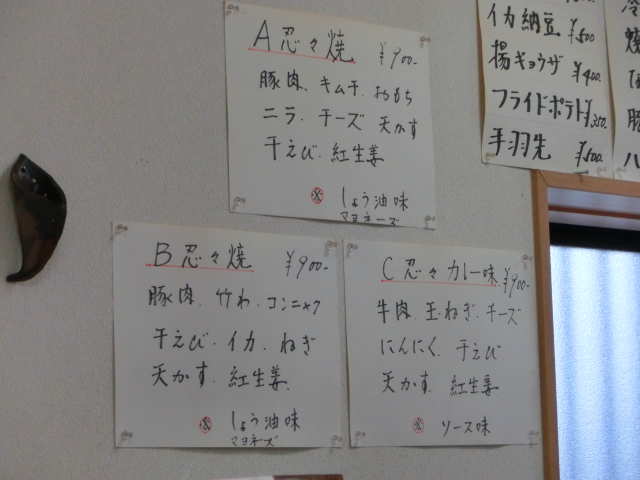 A 忍々焼 ¥900-
豚肉. キムチ. おもち
ニラ. チーズ 天かす
干えび. 紅生姜
※ しょう油味
マヨネーズ
B 忍々焼 ¥900-
豚肉. 竹わ. コンニャク
干えび. イカ. ねぎ
天かす. 紅生姜.
※ しょう油味
マヨネーズ
C 忍々カレー味 ¥900-
牛肉. 玉ねぎ. チーズ
にんにく. 干えび
天かす. 紅生姜
※ ソース味
イカ納豆 ¥500
揚ギョウザ ¥400.
フライドポテト ¥350.
手羽先 ¥500.
焼
豚
ハ